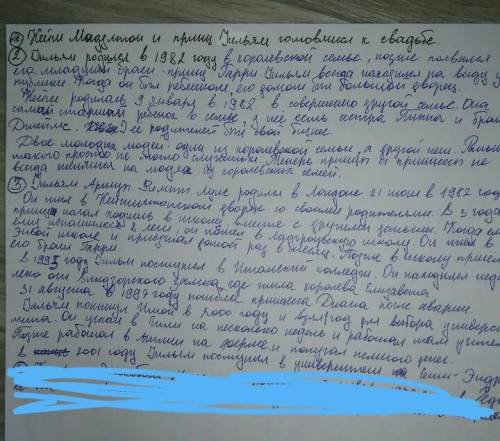 ① Кейти Мадэлтон и принц Уильям готовятся к свадьбе.
② Уильям родился в 1982 году в королевской семье, позже появился
его младший брат - принц Гарри. Уильям всегда находился на виду у
публике. Когда он был ребенком, его домом был большой дворец.
Кейти родилась 9 января в 1982 в совершенно другой семье. Она
самый старший ребенок в семье, у неё есть сестра Пиппа и брат
Джеймс. У её родителей был свой бизнес.
Двое молодых людей: один из королевской семьи, а другой нет. Раньше
такого просто не могло случиться. Теперь принцы и принцессы не
всегда женятся на людях из королевских семей.
③ Уильям Артур Филипп Луис родился в Лондоне 21 июня в 1982 году
Он жил в Кенсингтонском дворце со своими родителями. В 3 года
принц начал ходить в школу вместе с другими детьми. Когда ему
исполнилось 8 лет, он пошел в школу. Он жил в
школе и приезжал домой раз в месяц. Позже в школу пришел
его брат Гарри.
В 1995 году Уильям поступил в Итонский колледж. Он находился
от Виндзорского замка, где жила королева Елизавета.
31 августа в 1997 году погибла принцесса Диана после аварии.
Уильям покинул Итон в 2000 году и взял год для выбора
Он уехал в Чили на несколько недель и работал там
Позже работал в Англии на ферме и получал немного денег.
В 2001 году Уильям поступил в университет Сент-Эндрю